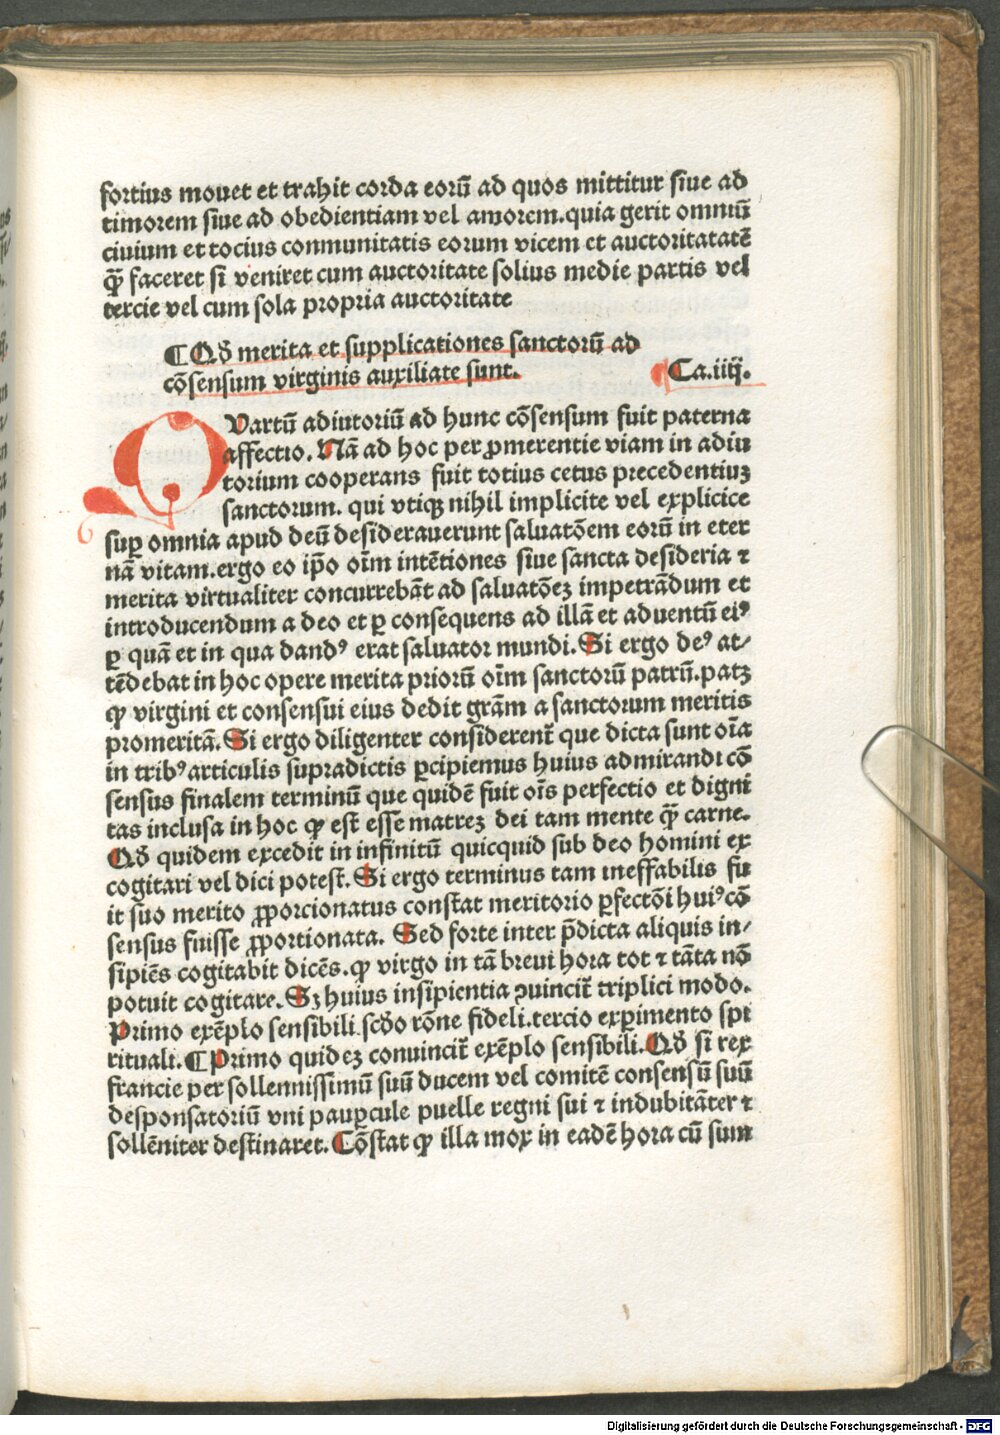 fortius mouet et trahit corda eorū ad quos mittitur siue ad
timorem siue ad obedientiam vel amorem.quia gerit omniū
ciuium et tocius conmunitatis eorum vicem et auctoritatatē
q̄ꝫ faceret si veniret cum auctoritate solius medie partis vel
tercie vel cum sola propria auctoritate
¶ Qꝺ merita et supplicationes sanctorū ad
cōsensum virginis auxiliate sunt. Ca.iiij.
QVartū adiutoriū ad hunc cōsensum fuit paterna
affectio. Nā ad hoc per ꝓmerentie viam in adiu
torium cooperans fuit totius cetus precedentiuꝫ
sanctorum. qui vtiqꝫ nihil implicite vel explicice
suꝑ omnia apud deū desiderauerunt saluatōem eorū in eter
nā vitam.ergo eo ip̄o oīm intētiones siue sancta desideria ⁊
merita virtualiter concurrebāt ad saluatōeꝫ impetrādum et
introducendum a deo et ꝑ consequens ad illā et aduentū eiꝰ
ꝑ quā et in qua dandꝰ erat saluator mundi. Si ergo deꝰ at/
tēdebat in hoc opere merita priorū oīm sanctorū patrū.patꝫ
ꝙ virgini et consensui eius dedit grām a sanctorum meritis
promeritā. Si ergo diligenter considerent̄ que dicta sunt oīa
in tribꝰ articulis supradictis ꝑcipiemus huius admirandi cō
sensus finalem terminū que quidē fuit oīs perfectio et digni
tas inclusa in hoc ꝙ est esse matreꝫ dei tam mente q̄ꝫ carne.
Qꝺ quidem excedit in infinitū quicquid sub deo homini ex
cogitari vel dici potest. Si ergo terminus tam ineffabilis fu
it suo merito ꝓporcionatus constat meritorio ꝑfectōi huiꝰ cō
sensus fuisse ꝓportionata. Sed forte inter p̄dicta aliquis in/
sipiēs cogitabit dicēs.ꝙ virgo in tā breui hora tot ⁊ tāta nō
potuit cogitare. Sꝫ huius insipientia ꝯuincit̄ triplici modo.
Primo exēplo sensibili scd̄o rōne fideli.tercio exꝑimento spi
rituali.¶ Primo quideꝫ conuincit̄ exēplo sensibili. Qꝺ si rex
francie per sollennissimū suū ducem vel comitē consensū suū
desponsatoriū vni pauꝑcule puelle regni sui ⁊ indubitāter ⁊
sollēniter destinaret. Cōstat ꝙ illa mox in eadē hora cū sum
Digitalisierung gefördert durch die Deutsche Forschungsgemeinschaft - DFG